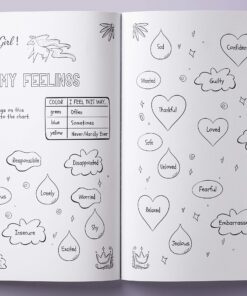 Girl!
MY FEELINGS
COLOR I FEEL THIS WAY...
green Often
blue Sometimes
yellow Never/Hardly Ever
on this
to the chart
Responsible
Disappointed
Disrespected
Lonely
Worried
Insecure
Shy
Loyal
Excited
Sad
Confident
Hated
Guilty
Thankful
Loved
Safe
Unloved
Fearful
Relaxed
Embarrassed
Jealous